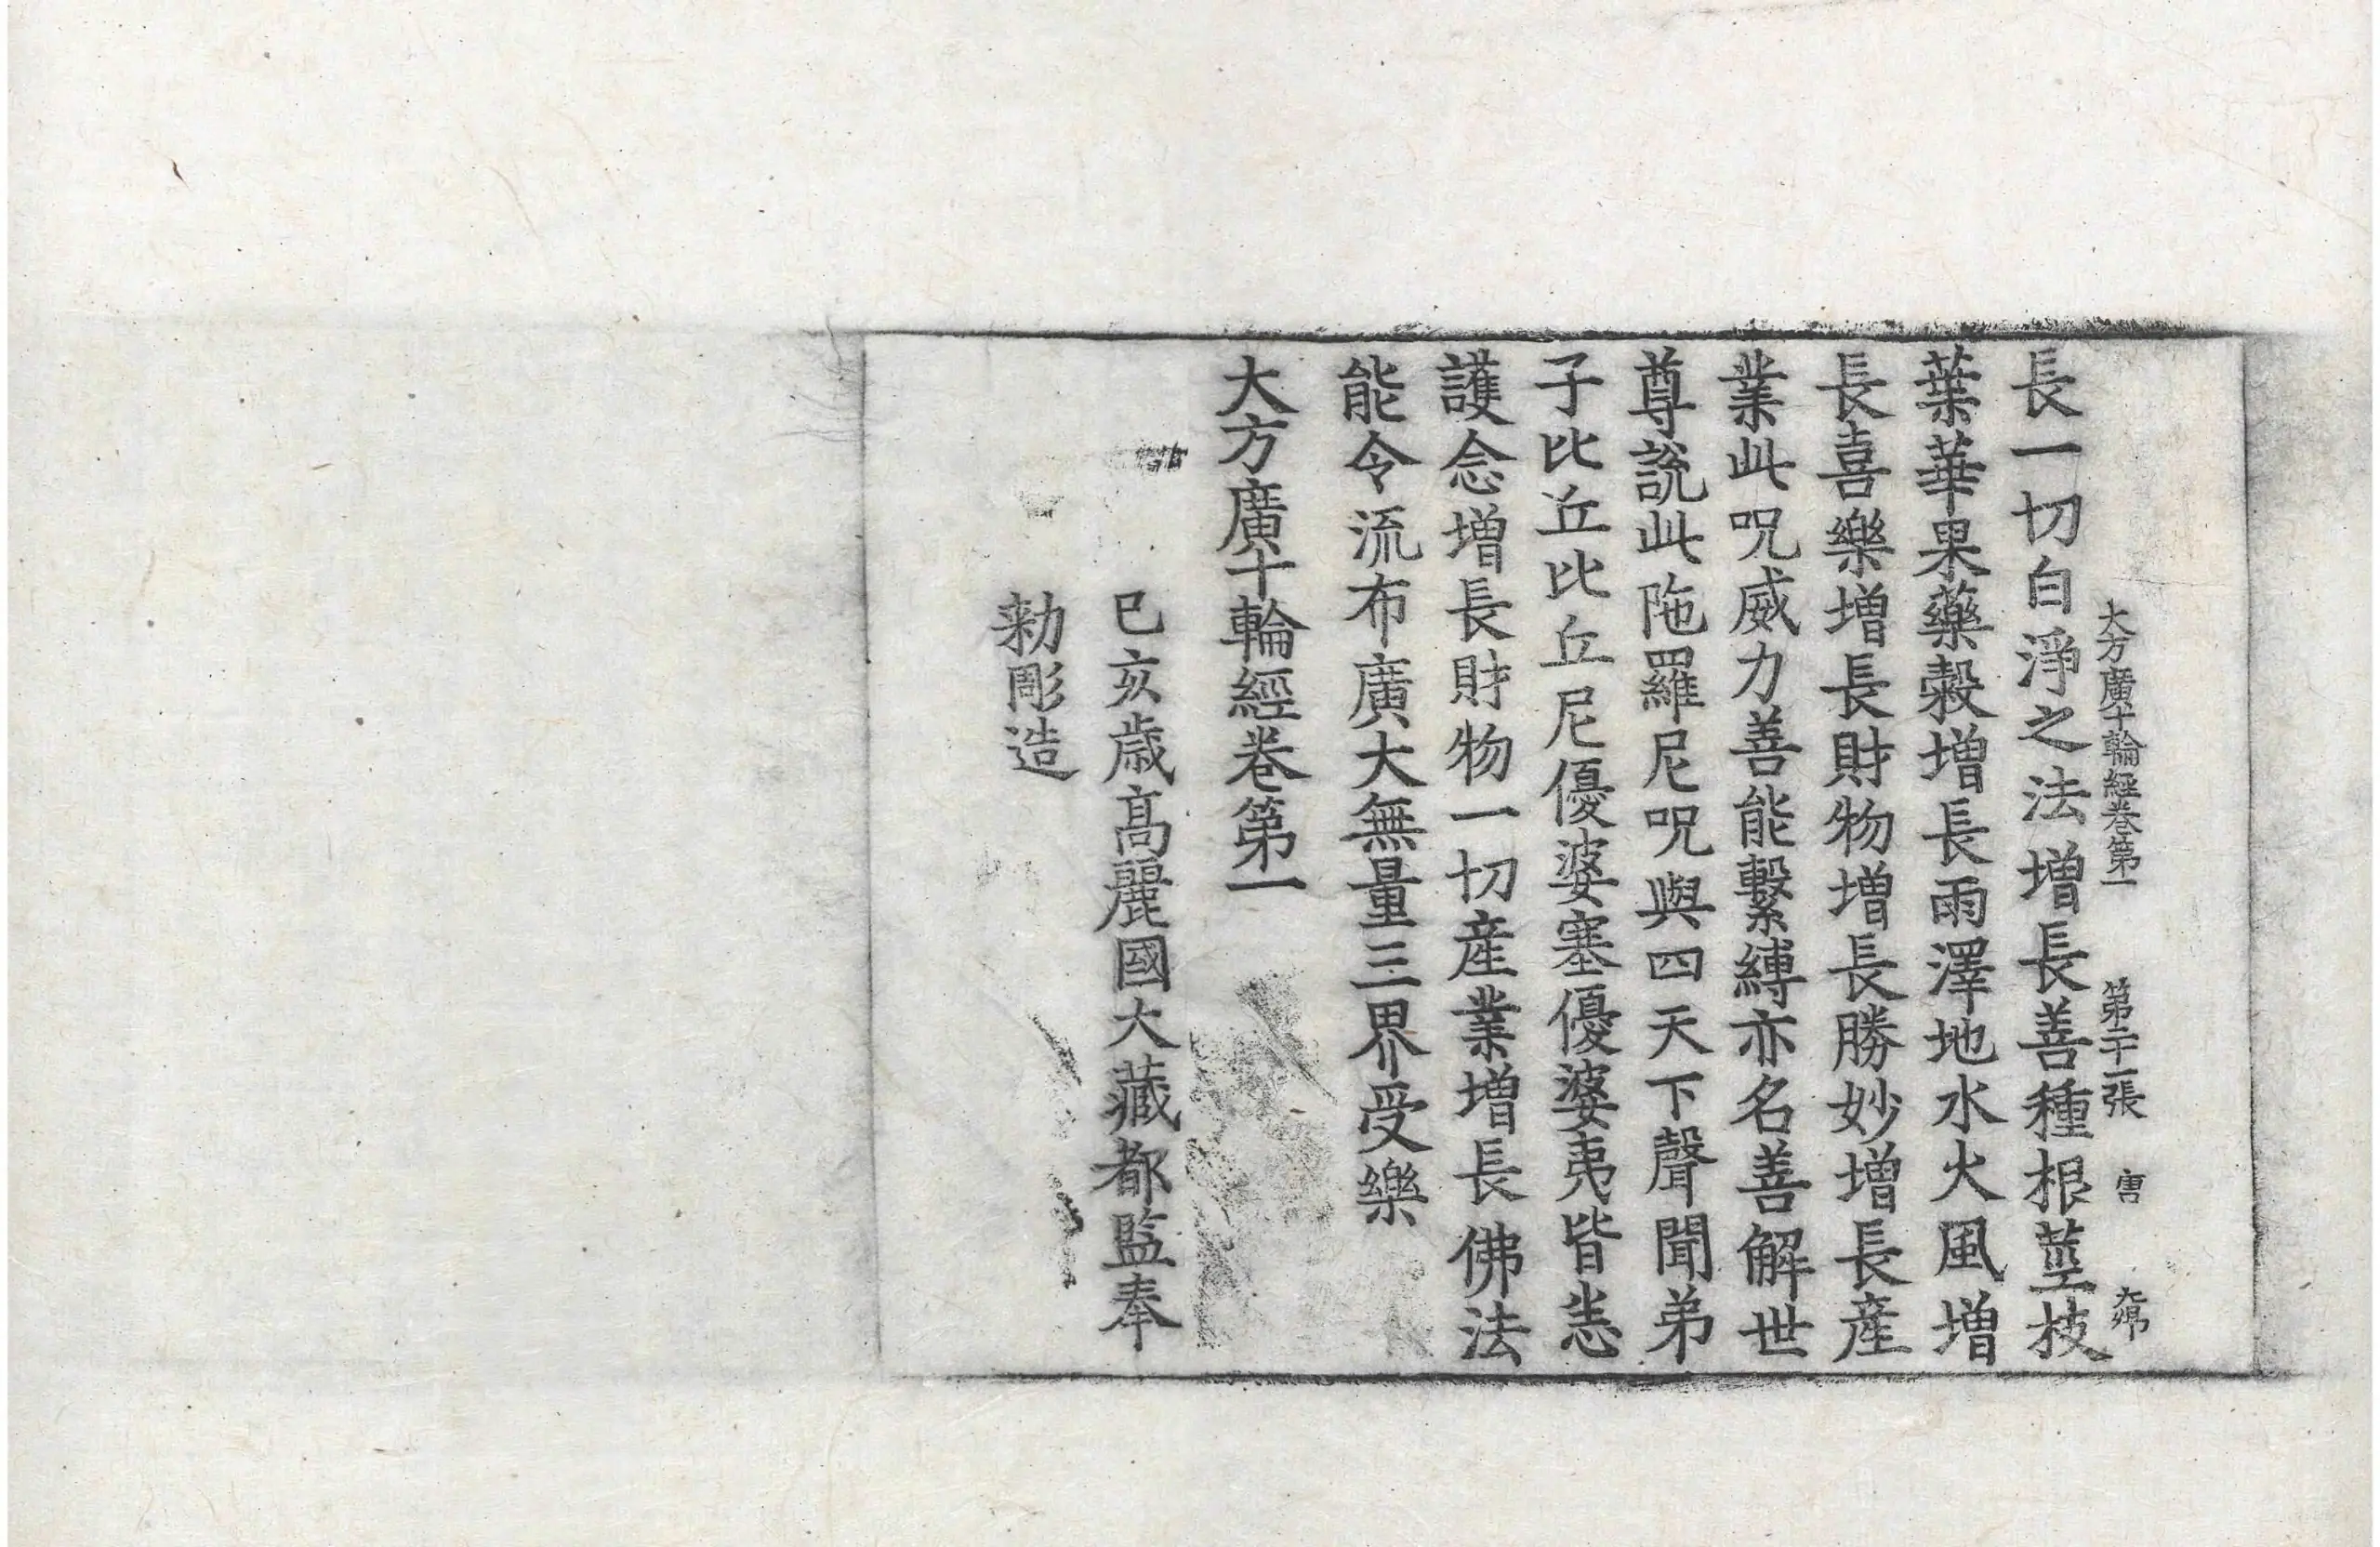 大方廣十輪經卷第一 第二十一張 唐
長一切白淨之法增長善種根莖枝
葉華果藥穀增長雨澤地水火風增
長喜樂增長財物增長勝妙增長產
業此呪威力善能繫縛亦名善解世
尊說此陁羅尼呪與四天下聲聞弟
子比丘比丘尼優婆塞優婆夷皆悉
護念增長財物一切產業增長佛法
能令流布廣大無量三界受樂
大方廣十輪經卷第一
己亥歲高麗國大藏都監奉
勑彫造